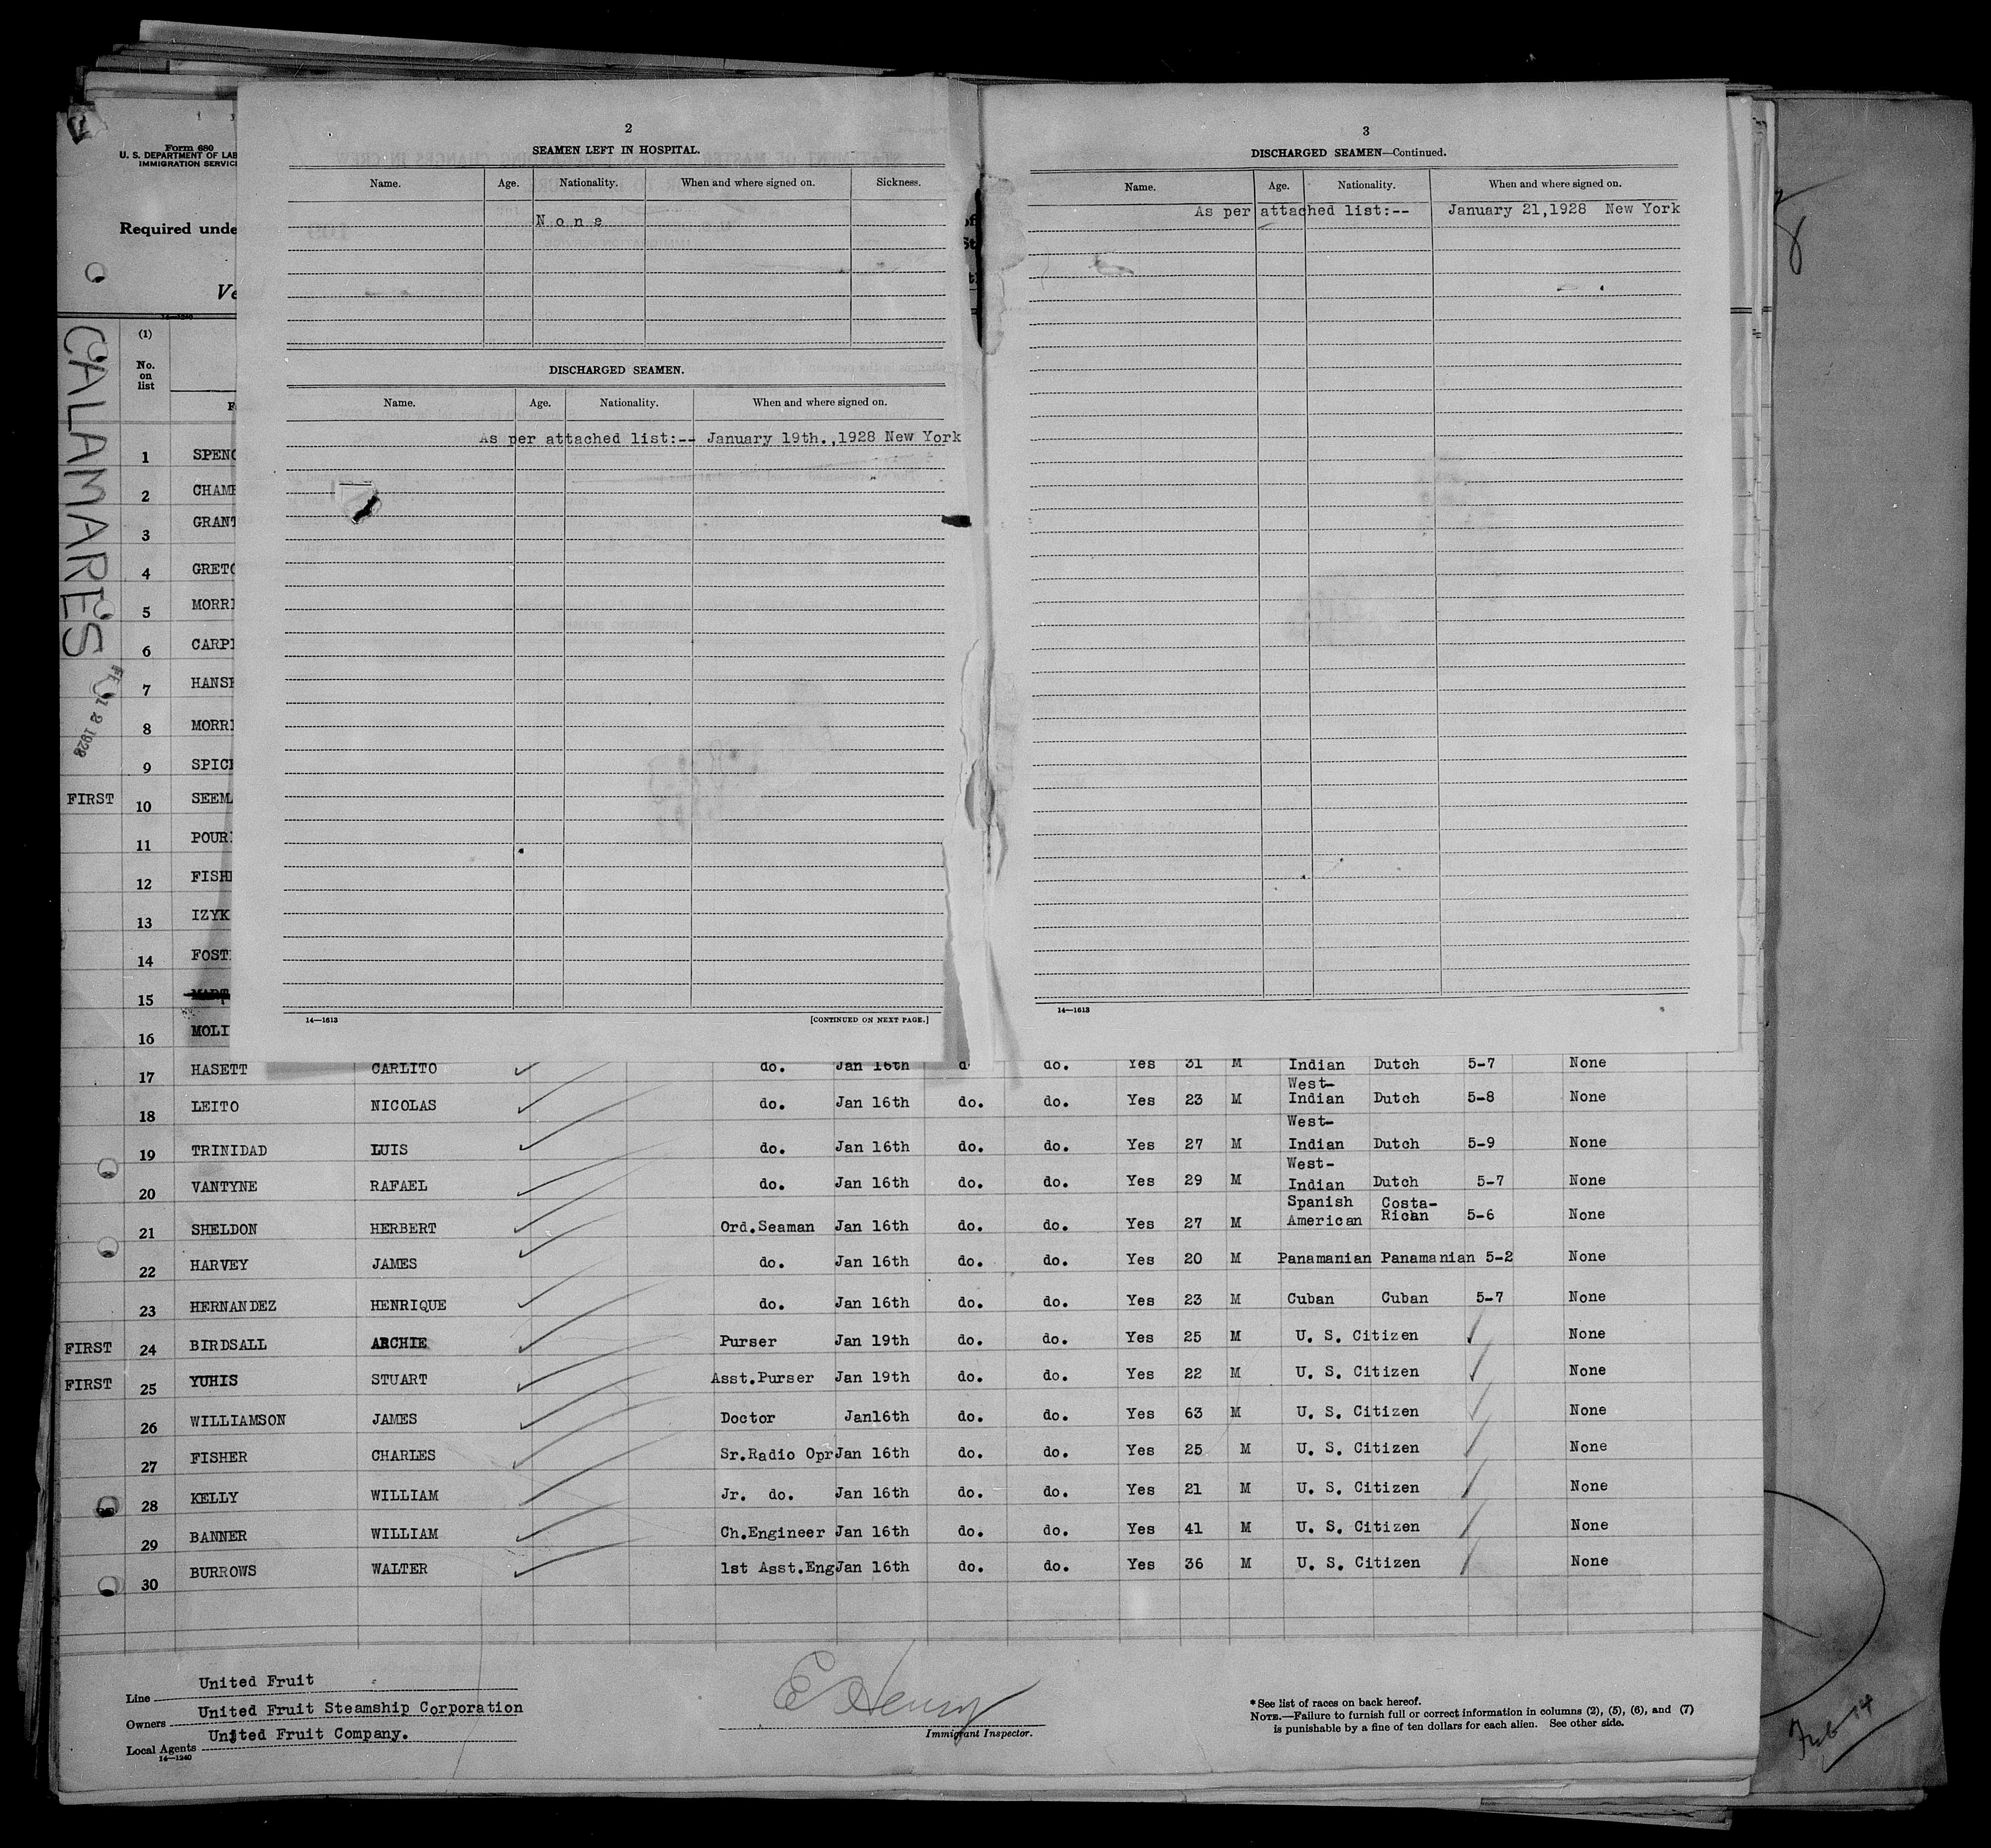 Form 680
U. S. DEPARTMENT OF LAB
IMMIGRATION SERVIC
Required unde
CALAMARES
1 2 1928
(1)
No.
on
list
2
SEAMEN LEFT IN HOSPITAL.
Name. Age. Nationality. When and where signed on. Sickness.
None
DISCHARGED SEAMEN.
Name. Age. Nationality. When and where signed on.
As per attached list:-- January 19th.,1928 New York
14—1613 [CONTINUED ON NEXT PAGE.]
3
DISCHARGED SEAMEN—Continued.
Name. Age. Nationality. When and where signed on.
As per attached list:-- January 21,1928 New York
14—1613
1 SPENC
2 CHAMB
3 GRANT
4 GRETC
5 MORRI
6 CARPE
7 HANSE
8 MORRI
9 SPICE
FIRST 10 SEEMA
11 POUR
12 FISHE
13 IZYK
14 FOST
15 MART
16 MOLI
17 HASETT CARLITO do. Jan 16th do. do. Yes 31 M Indian Dutch 5-7 None
18 LEITO NICOLAS do. Jan 16th do. do. Yes 23 M West-Indian Dutch 5-8 None
19 TRINIDAD LUIS do. Jan 16th do. do. Yes 27 M West-Indian Dutch 5-9 None
20 VANTYNE RAFAEL do. Jan 16th do. do. Yes 29 M West-Indian Dutch 5-7 None
21 SHELDON HERBERT Ord.Seaman Jan 16th do. do. Yes 27 M Spanish American Costa-Rican 5-6 None
22 HARVEY JAMES do. Jan 16th do. do. Yes 20 M Panamanian Panamanian 5-2 None
23 HERNANDEZ HENRIQUE do. Jan 16th do. do. Yes 23 M Cuban Cuban 5-7 None
FIRST 24 BIRDSALL ARCHIE Purser Jan 19th do. do. Yes 25 M U. S. Citizen None
FIRST 25 YUHIS STUART Asst.Purser Jan 19th do. do. Yes 22 M U. S. Citizen None
26 WILLIAMSON JAMES Doctor Jan16th do. do. Yes 63 M U. S. Citizen None
27 FISHER CHARLES Sr.Radio Opr Jan 16th do. do. Yes 25 M U. S. Citizen None
28 KELLY WILLIAM Jr. do. Jan 16th do. do. Yes 21 M U. S. Citizen None
29 BANNER WILLIAM Ch.Engineer Jan 16th do. do. Yes 41 M U. S. Citizen None
30 BURROWS WALTER 1st Asst.Eng Jan 16th do. do. Yes 36 M U. S. Citizen None
Line United Fruit
Owners United Fruit Steamship Corporation
Local Agents United Fruit Company.
14—1240
E Henry
Immigrant Inspector.
* See list of races on back hereof.
NOTE.—Failure to furnish full or correct information in columns (2), (5), (6), and (7)
is punishable by a fine of ten dollars for each alien. See other side.
Feb 14